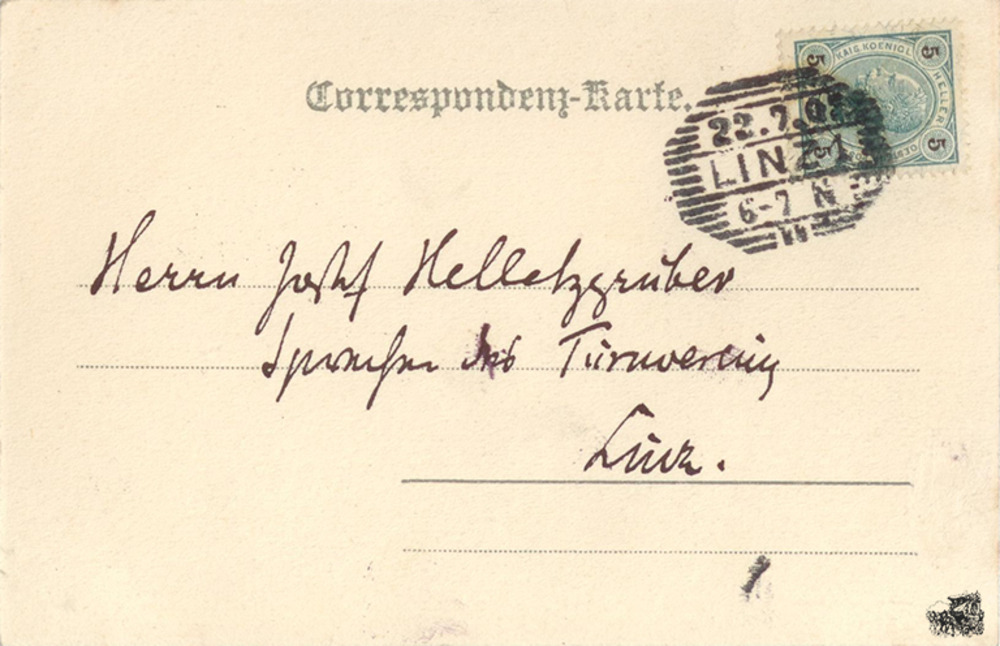 Correspondenz-Karte.
5 KAIS. KOENIGL. 5
HELLER
5 5
22.7.0
LINZ 1
6-7 N
Herrn Josef Helletzgruber
Sprecher des Turnverein
Linz.